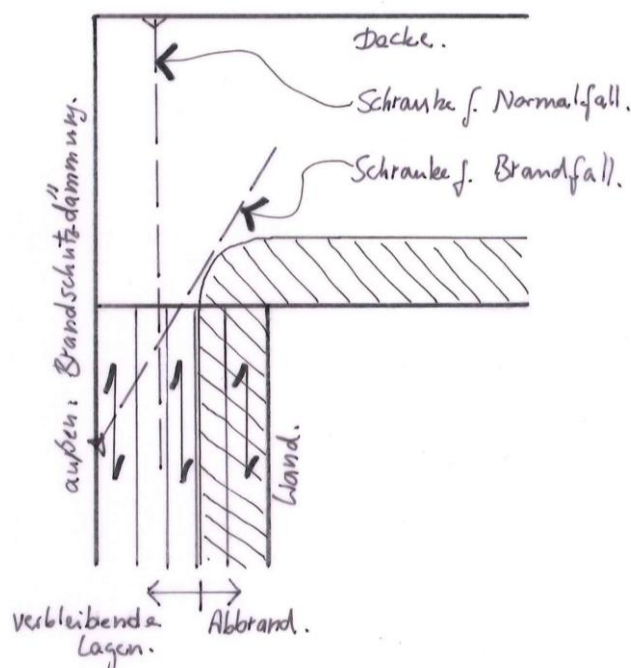 Decke.
Schraube f. Normalfall.
Schraube f. Brandfall.
außen: Brandschutzdämmung.
Wand.
verbleibende
Lagen.
Abbrand.